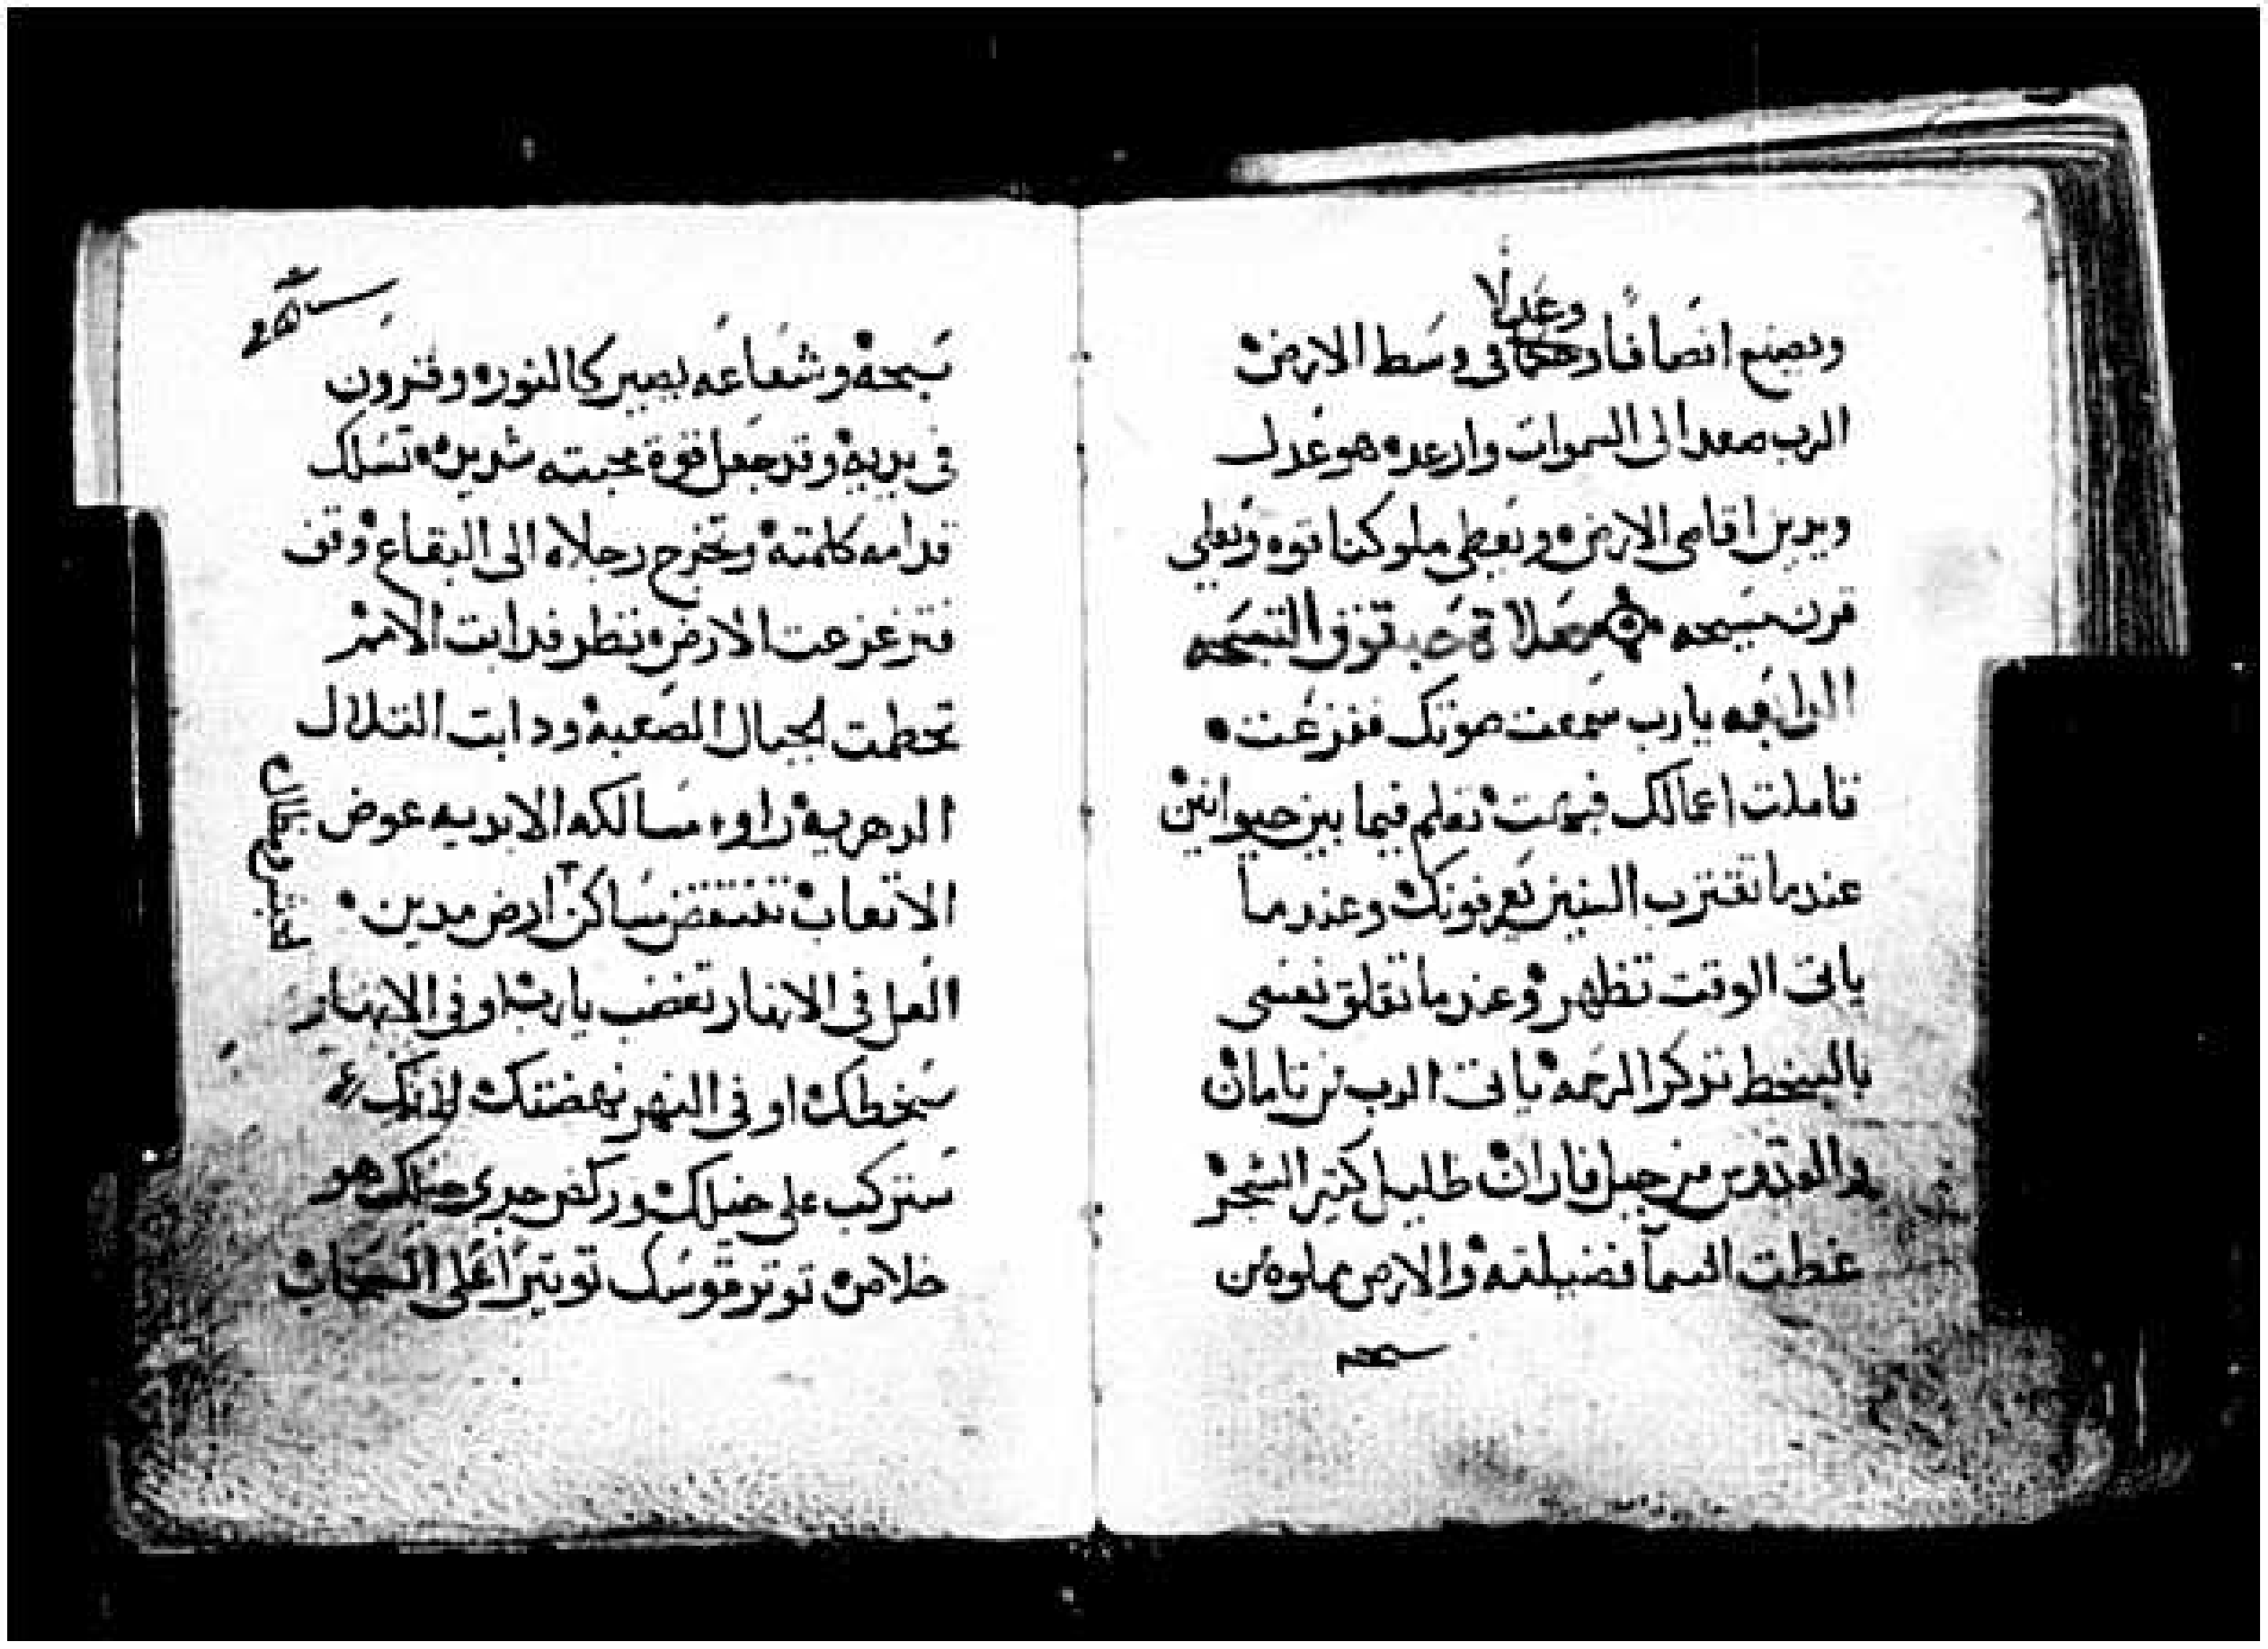 وعدلا
ويصنع انصافا وحكما في وسط الارض
الرب صعد الى السموات وارعد هو عدل
ويدين اقاصي الارض ويعطي ملوكنا قوه ويعلي
قرن مسيحه التسبحه
الرابعه يارب سمعت صوتك ففزعت
تاملت اعمالك فبهت تعلم فيما بين حيوانين
عندما تقترب السنين تعرفونك وعندما
ياتى الوقت تظهر وعندما تقلق نفسى
بالسخط تذكر الرحمه ياتى الرب من تامان
والقدوس من جبل فاران ظليل كثير الشجر
غطت السما فضيلته والارض مملوه من
سبحه
سبحه وشعاعه يصير كالنور وقرون
في يديه وقد جعل قوة محبته شديده تسلك
قدامه كلمته وتخرج رجلاه الى البقاع وقف
فتزعزعت الارض نظر فدابت الامم
تحطمت الجبال الصعبه ودابت التلال
الدهريه راوا مسالكه الابديه عوض
الاتعاب تنتقض مساكن ارض مدين
العل في الانهار تغضب يارب او في الانهار
سخطك او في النهر نهضتك لانك
ستركب على خيلك وركض جري خيلك هو
خلاص توتر قوسك توتيرا على السحاب